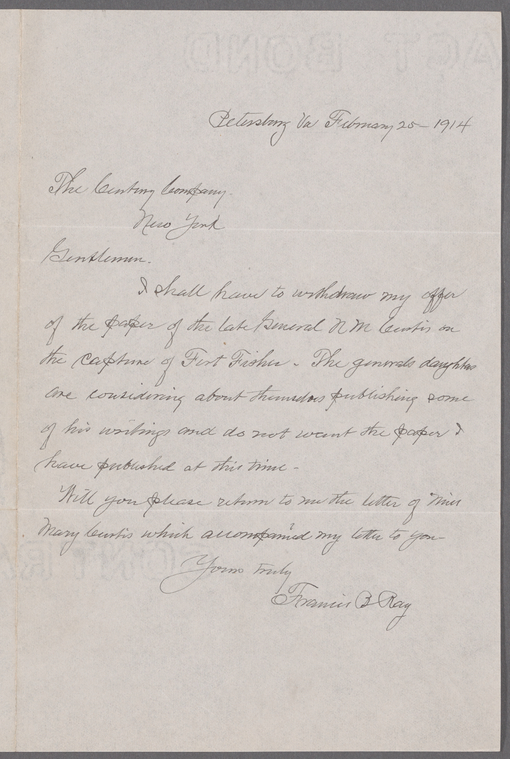 Petersburg Va February 25 - 1914
The Century Company.
New York
Gentlemen.
I shall have to withdraw my offer
of the paper of the late General N M Curtis on
the capture of Fort Fisher - The generals daughters
are considering about themselves publishing some
of his writings and do not want the paper I
have published at this time -
Will you please return to me the letter of Miss
Mary Curtis which accompanied my letter to you
Yours truly
Francis B Ray